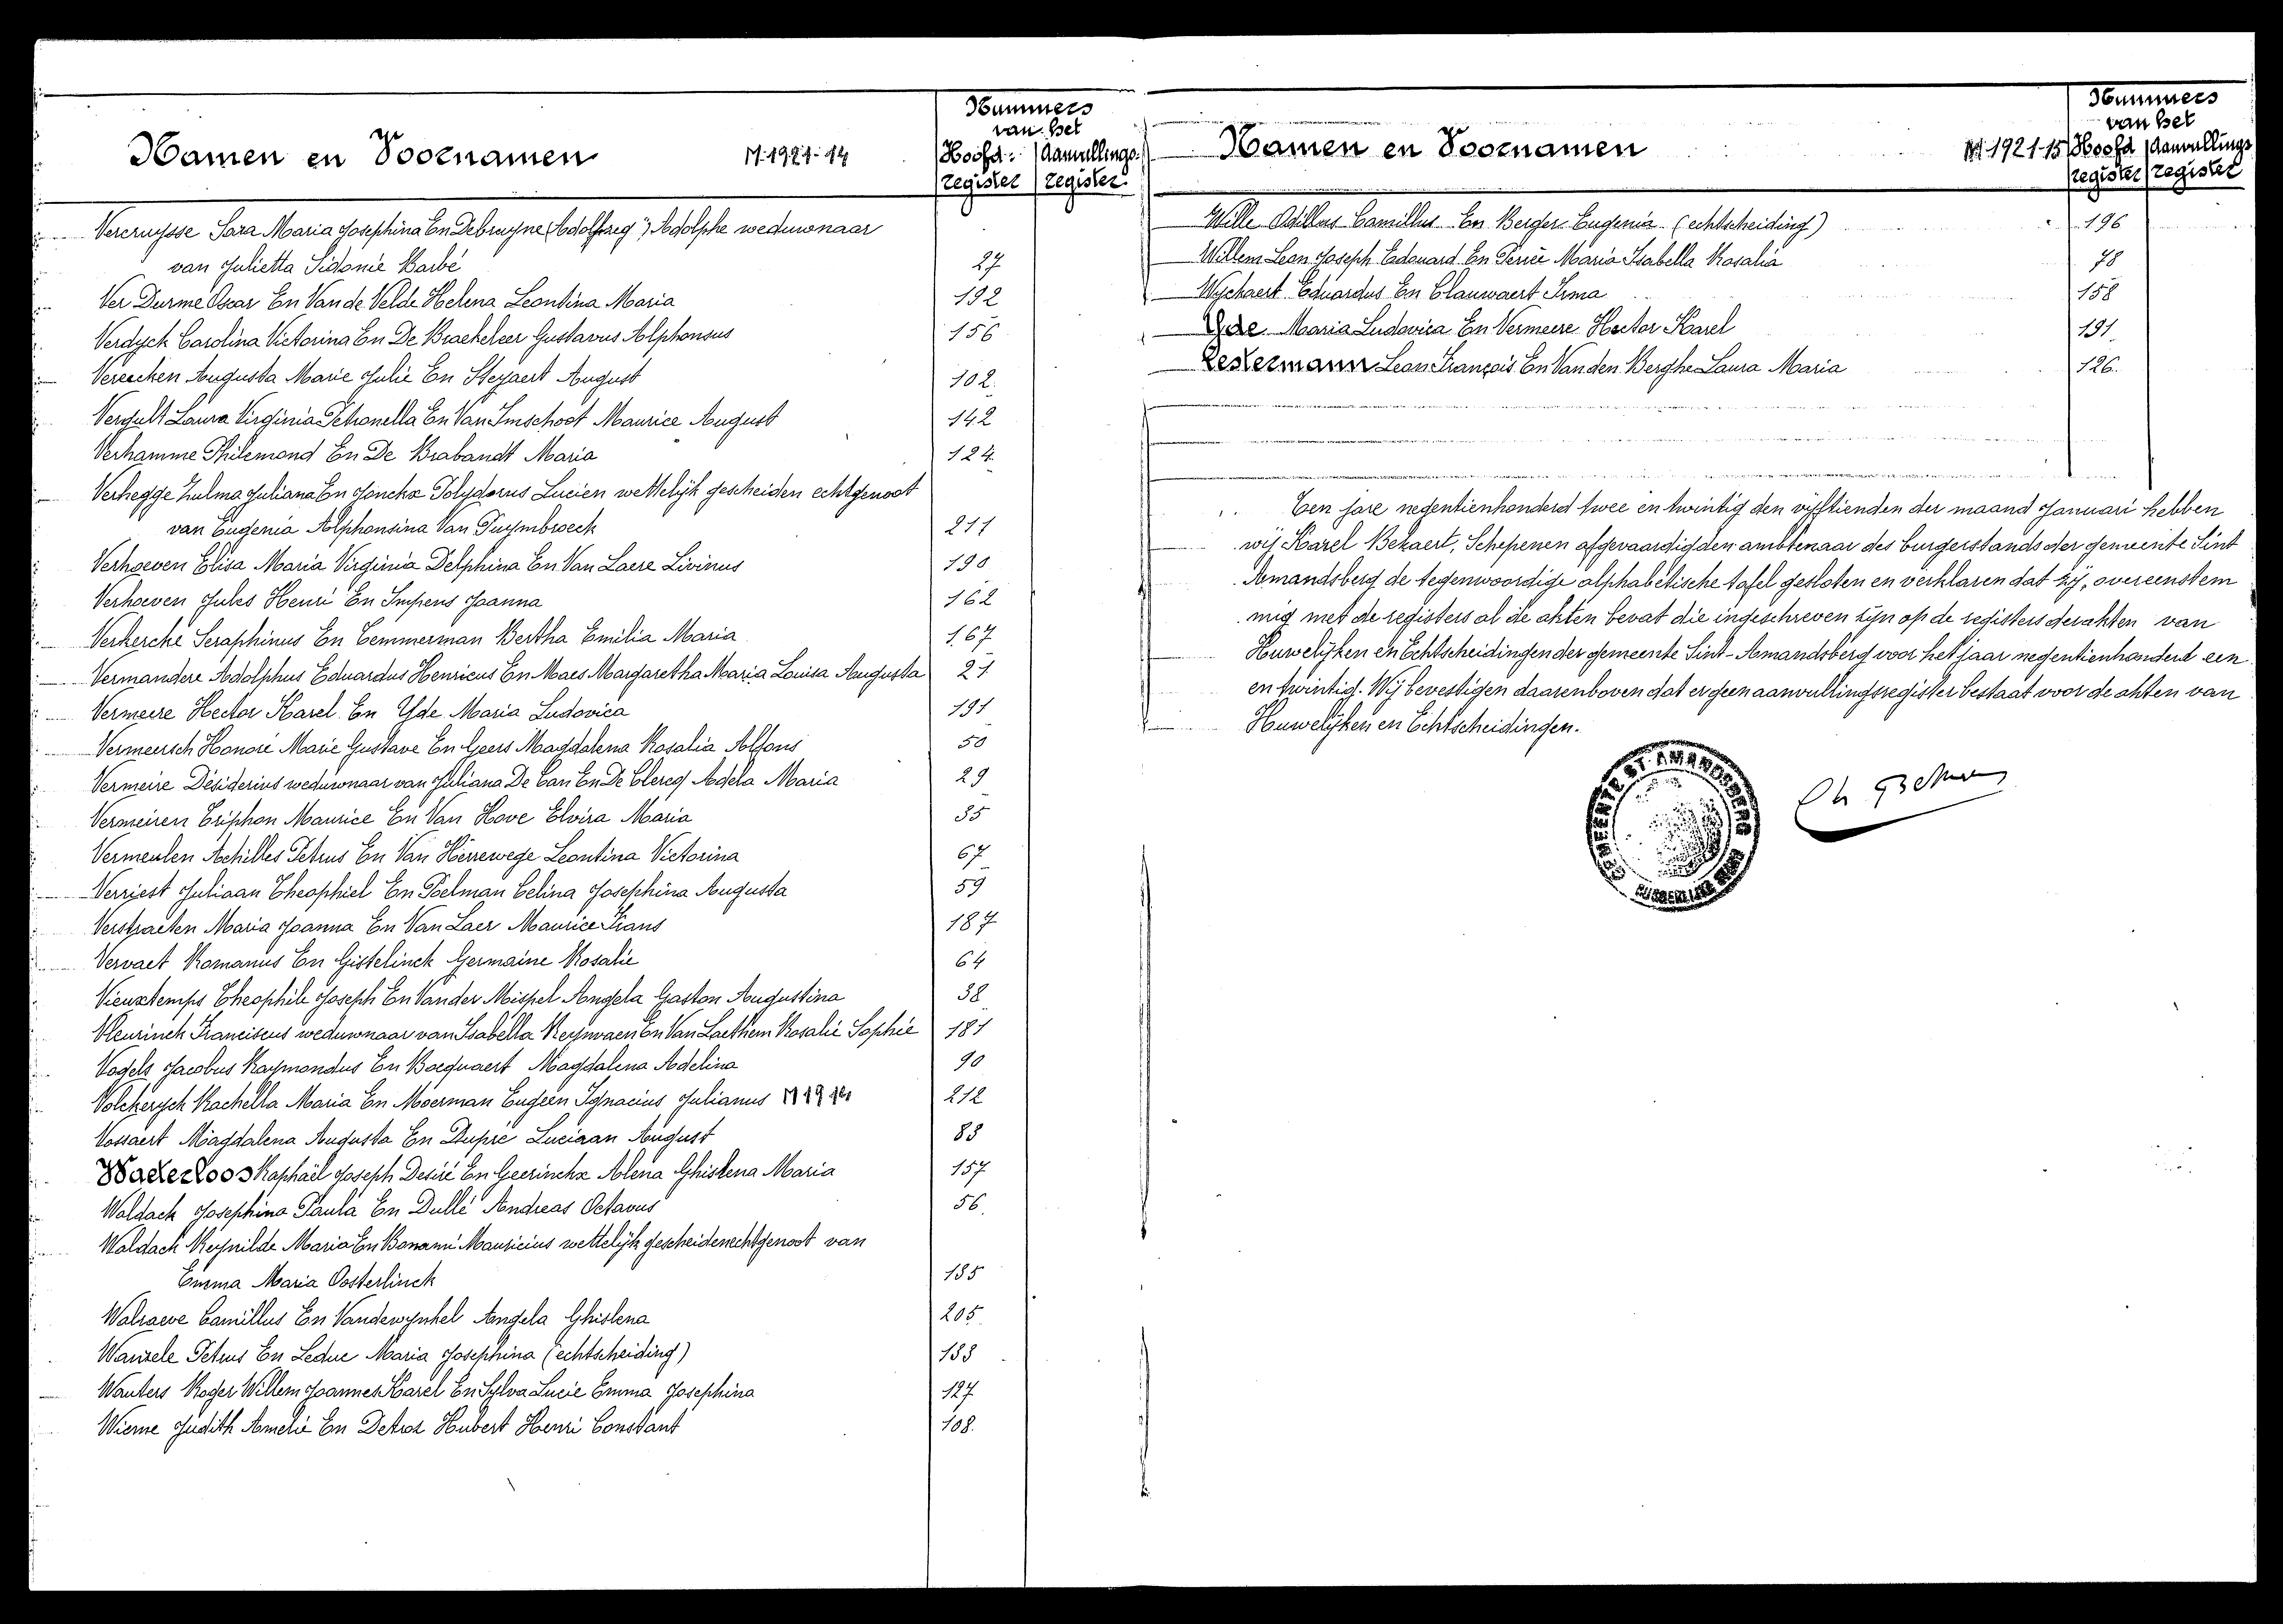 Namen en Voornamen
M. 1921-14
Nummers
van het
Hoofd- Aanvullings-
register register
Vercruysse Sara Maria Josephina En Debruyne Adolphe weduwnaar
van Julietta Sidonie Barbé 27
Ver Durme Oscar En Van de Velde Helena Leontina Maria 192
Verdyck Carolina Victorina En De Brackeleer Gustavus Alphonsus 156
Vereecken Augusta Marie Julie En Steyaert August 102.
Vergult Laura Virginia Petronella En Van Imschoot Maurice August 142
Verhamme Philemond En De Brabandt Maria 124.
Verhegge Zulma Juliana En Jonckx Polydorus Lucien wettelijk gescheiden echtgenoot
van Eugenia Alphonsina Van Puymbroeck 211
Verhoeven Elisa Maria Virginia Delphina En Van Laere Livinus 190
Verhoeven Jules Henri En Impens Joanna 162
Verkercke Seraphinus En Temmerman Bertha Emilia Maria 167
Vermandere Adolphus Eduardus Henricus En Maes Margaretha Maria Louisa Augusta 21
Vermeere Hector Karel En Yde Maria Ludovica 191
Vermeersch Honoré Marie Gustave En Geers Magdalena Rosalia Alfons 50
Vermeire Désiderius weduwnaar van Juliana De Can En De Clercq Adela Maria 29
Vermeiren Triphon Maurice En Van Hove Elvira Maria 35
Vermeulen Achilles Petrus En Van Herrewege Leontina Victorina 67
Verriest Juliaan Theophiel En Poelman Celina Josephina Augusta 59
Verstraeten Maria Joanna En Van Laer Maurice Frans 187
Vervaet Romanus En Gistelinck Germaine Rosalie 64
Vieuxtemps Theophile Joseph En Vander Mispel Angela Gaston Augustina 38
Vleurinck Franciscus weduwnaar van Isabella Reynvaen En Van Laethem Rosalie Sophie 181
Vogels Jacobus Raymondus En Bocquaert Magdalena Adelina 90
Volckerych Rachella Maria En Moerman Eugeen Ignacius Julianus 212
Vossaert Magdalena Augusta En Dupré Luciaan August 83
Waterloos Raphaël Joseph Desiré En Geerinckx Alena Ghislena Maria 157
Waldack Josephina Paula En Dullé Andreas Octavus 56.
Waldack Reynilde Maria En Bonami Mauricius wettelijk gescheiden echtgenoot van
Emma Maria Oosterlinck 185
Walraeve Camillus En Vandewynkel Angela Ghislena 205
Wanzele Petrus En Leduc Maria Josephina (echtscheiding) 133
Wauters Roger Willem Joannes Karel En Sylva Lucie Emma Josephina 127
Wieme Judith Amelie En Detroz Hubert Henri Constant 108.
Namen en Voornamen
M. 1921-15
Nummers
van het
Hoofd Aanvullings
register register
Wille Achilles Camillus En Berger Eugenia (echtscheiding) 196
Willem Leon Joseph Edouard En Maria Isabella Rosalia 78
Wychaert Eduardus En Clauwaert Irma 158
Yde Maria Ludovica En Vermeere Hector Karel 191
Zestermann Leon François En Van den Berghe Laura Maria 126.
Ten jare negentienhonderd twee en twintig den vijftienden der maand Januari hebben
wij Karel Bekaert, Schepenen afgevaardigden ambtenaar des burgerstands der gemeente Sint
Amandsberg de tegenwoordige alphabetische tafel gesloten en verklaren dat zij, overeenstem
mig met de registers al de akten bevat die ingeschreven zijn op de registers der akten van
Huwelijken en Echtscheidingen der gemeente Sint-Amandsberg voor het jaar negentienhonderd een
en twintig. Wij bevestigen daarenboven dat er geen aanvullingsregister bestaat voor de akten van
Huwelijken en Echtscheidingen.
GEMEENTE ST. AMANDSBERG